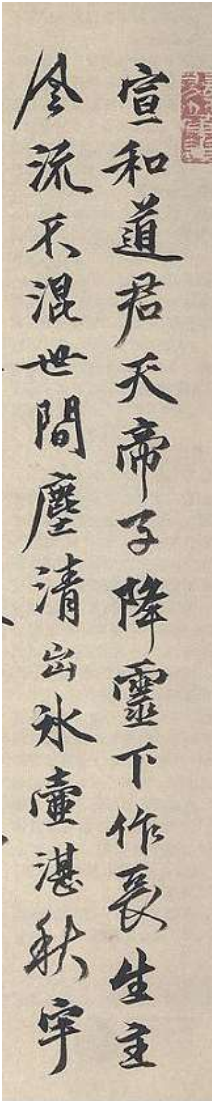 宣和道君天帝子降靈下作長生主
風流不混世間塵清出冰壺湛秋宇